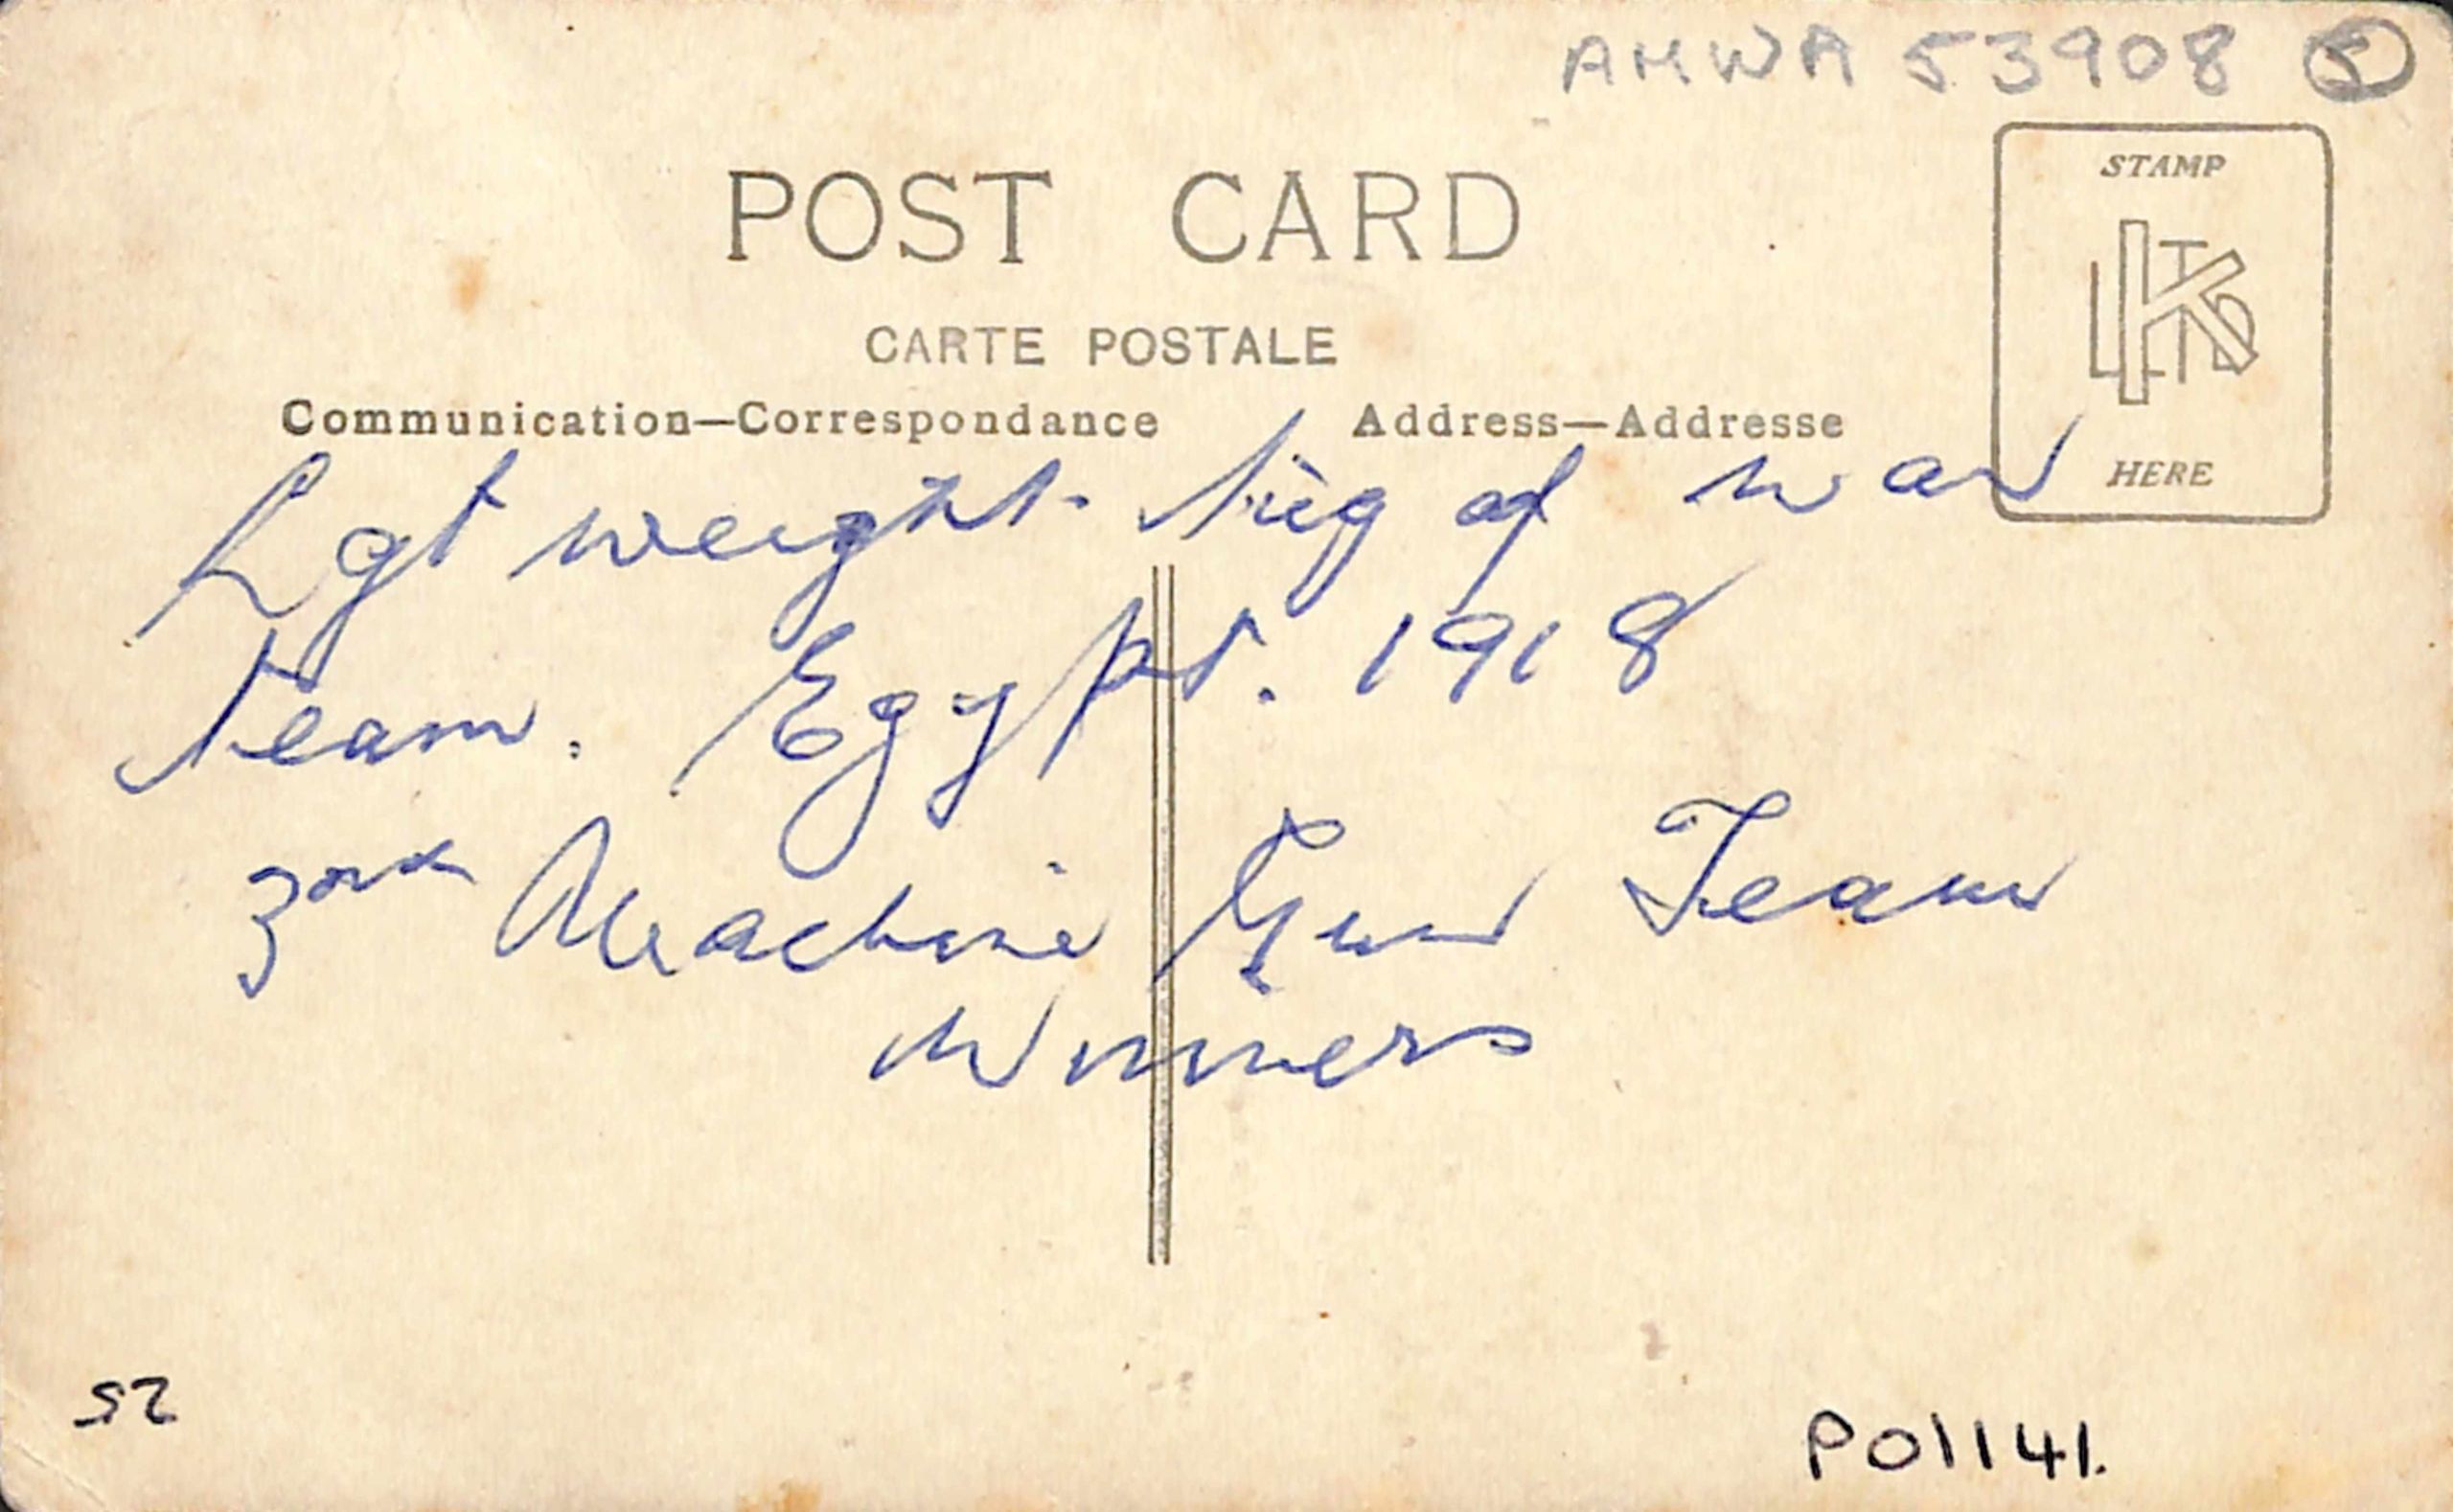 AMWA 53908 5
POST CARD
CARTE POSTALE
Communication—Correspondance
Address—Addresse
STAMP
KLTD
HERE
Lgt weight Tug of war
Team. Egypt. 1918
Machine Gun Team
Winners
52
P01141.